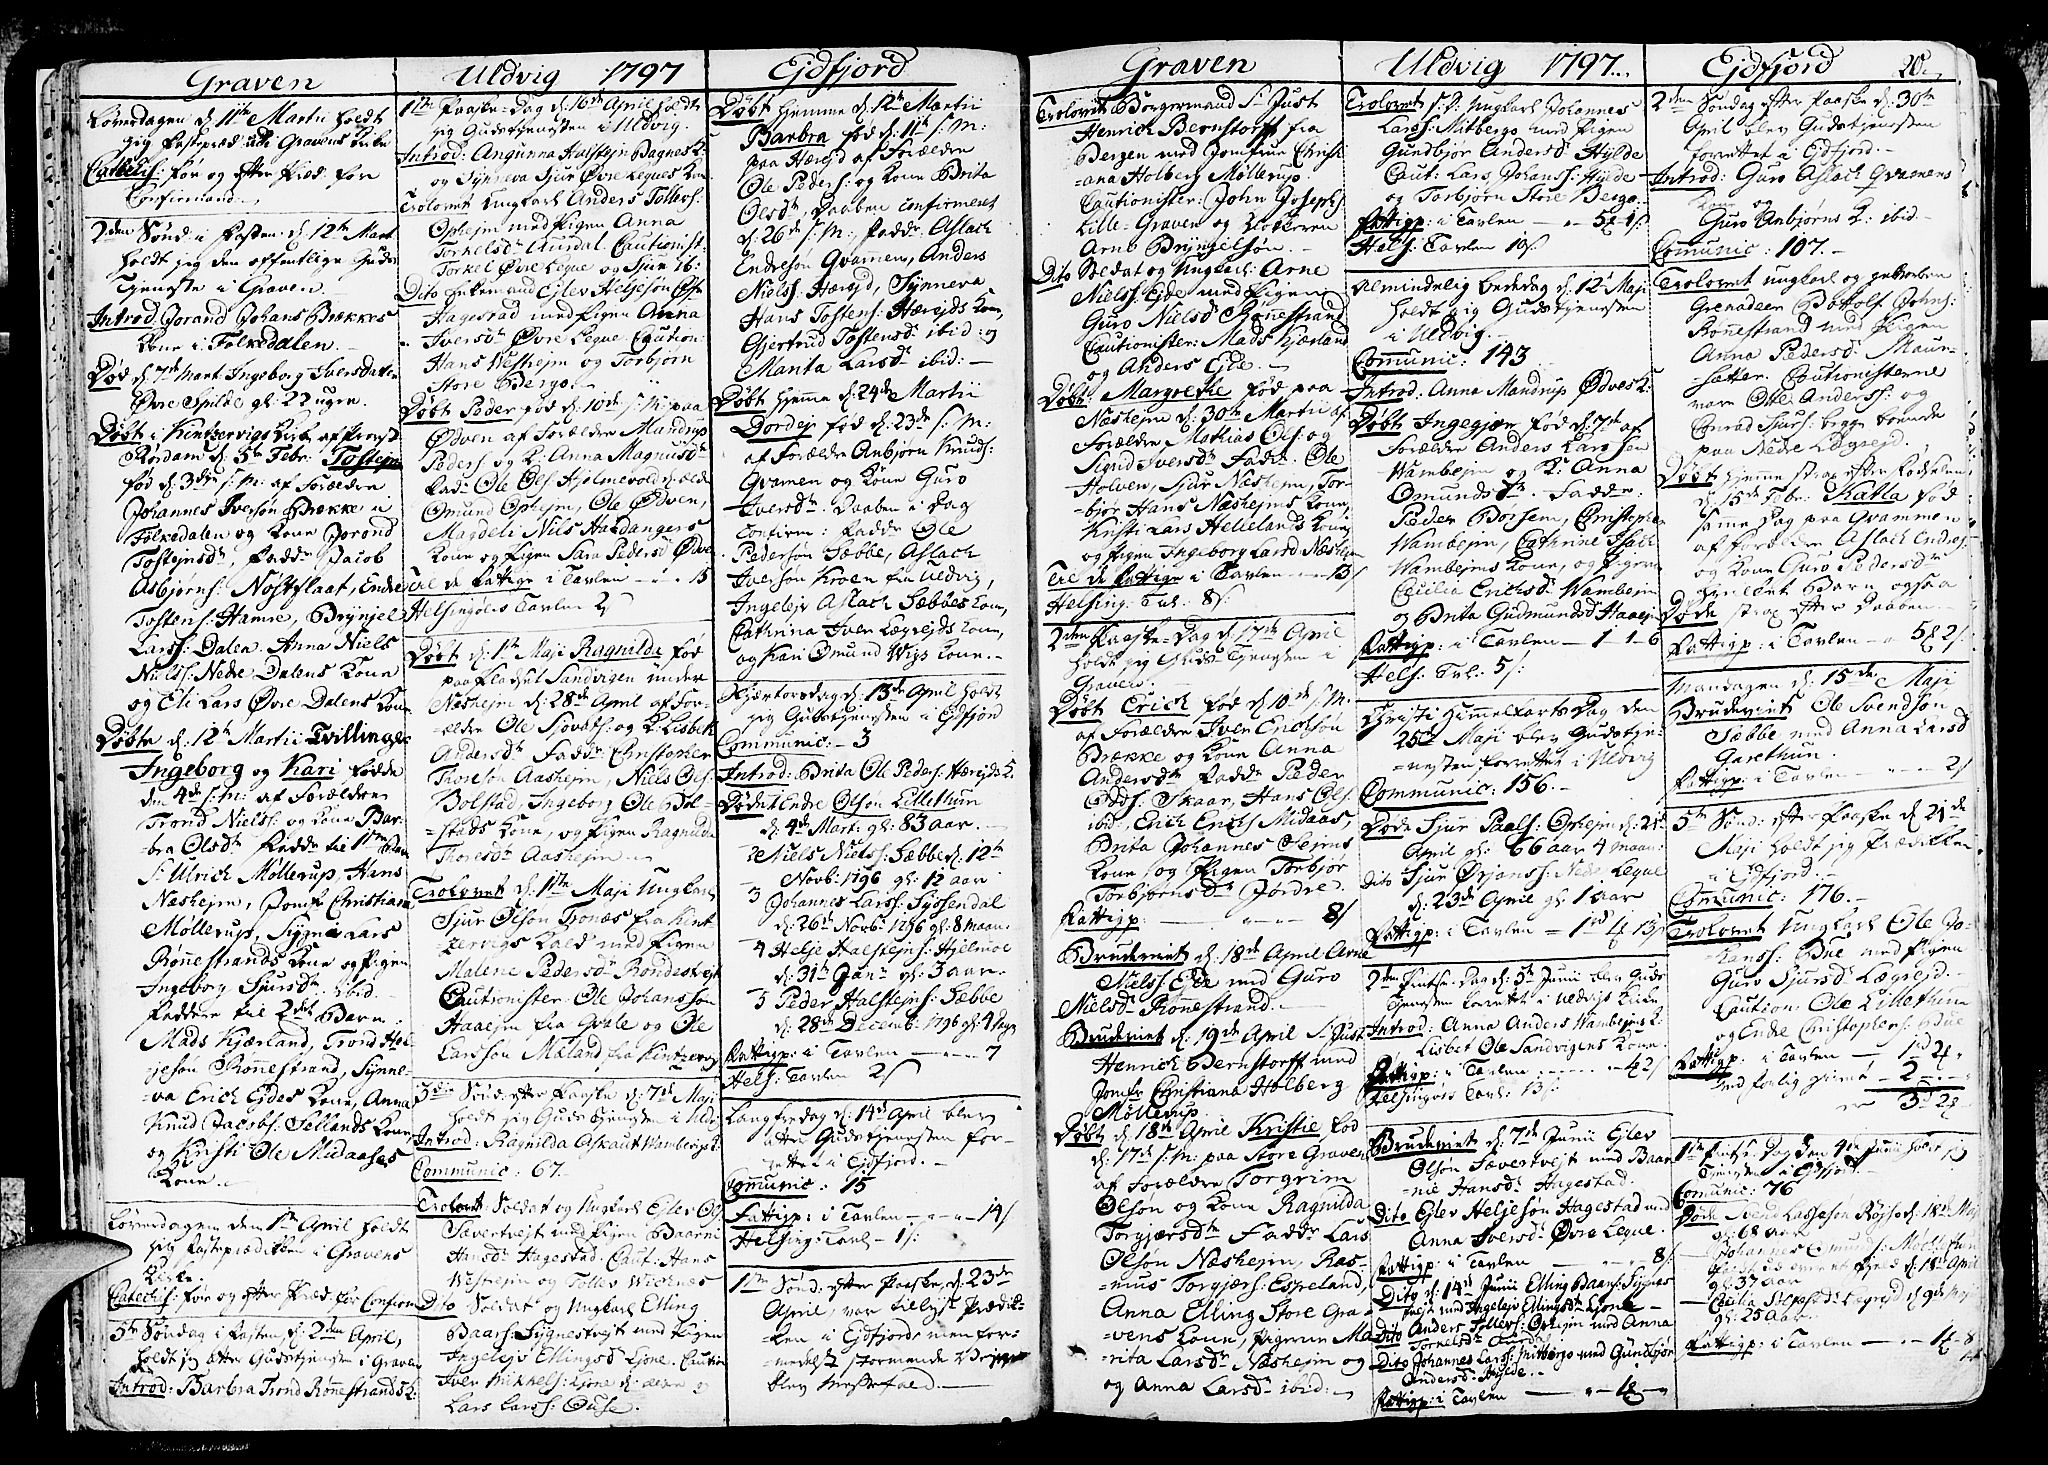 Graven
Løverdagen d. 11te Martii holdt
jeg Fastepræd: udi Gravens Kirke
Catechis: før og efter Præd. for
Confirmand.
2den Sønd: i Fasten d: 12te Mart
holdt jeg den offentlige Guds
Tjeneste i Graven
Introd: Jorand Johans Brækkes
Kone i Folkedalen.
Død d. 7de Mart: Ingeborg Iversdatter
Øvre Spilde gl: 22 ugen.
Døbt i Kintzervigs Kirke af Provst
Rordam d. 5te Febr: Tostejn
fød d. 3de s: M: af Forældre
Johannes Iversøn Brække i
Folkedalen og Kone Jorond
Tostejnsdr, Faddr Jacob
Asbjørns: Nøstflaat, Endre
Tostens: Hamre, Brynjel
Larss: Dalen, Anna Niels
Nielss: Nedre Dalens Kone
og Eli Lars Øvre Dalens Kone
Døbte d. 12te Martii Tvillinger
Ingeborg og Kari fødde
den 4de s: M: af Forældre
Trond Nielss: og Kone Bar-
bra Olsdr Faddr til 1ste Barn
Sr Ulrich Møllerup, Hans
Næshejm, Jomfr Christiana
Møllerup, Sygni Lars
Rønnestrands Kone og Pigen
Ingeborg Sjursdr ibid.
Faddere til 2det Barn:
Mads Kjærland, Trond Hel-
jesøn Rønnestrand, Synne-
va Erich Ejdes Kone, Anna
Knud Jacobs: Sellands Kone
og Kristi Ole Midaases
Kone.
Løverdagen den 1ste April holdt
jeg Fasteprædiken i Gravens
Kirke
Catechis: før og efter Præd. for Confirm
5te Søndag i Fasten d: 2den April,
holdt jeg atter Gudstjenesten i Graven
Introd: Barbra Trond Rønnestrands K:
Uldvig 1797
1ste Paaske-Dag d. 16de April holdt
jeg Gudstjenesten i Uldvig.
Introd: Angunna Halstejn Bagnes K:
og Synneva Sjur Øvre Leques Kone
Trolovet Ungkarl Anders Tollefs:
Ophejm med Pigen Anna
Torkelsdr Lunsdal. Cautionist:
Torkel Øvre Leque og Sjur ib:
Dito Enkemand Ejlev Heljesøn Øfr
Hagestad med Pigen Anna
Iversdr Øvre Leque. Caution:
Hans Westhejm og Torbjørn
Store Berge.
Døbt Peder fød d: 10de s: M: paa
Ødven af Forældre Mandrup
Peders: og K: Anna Magnusdr
Fadr: Ole Ols: Hjelmevold
Omund Ophejm, Ole Ødven,
Magdeli Nils Hardangers
Kone og Pigen Sara Pedersdr Ødve
Til de Fattige i Tavlen - - - 15
Helsingøers Tavlen 2ſ
Døbt d. 1ste Maji Ragnilde fød
paa Pladset Sandvigen under
Næshejm d: 28de April af For-
ældre Ole Sjovats: og K. Lisbeth
Andersdr Faddr Christopher
Thoresøn Aashejm, Niels Ols:
Bolstad, Ingeborg Ole Bol-
stads Kone, og Pigen Ragnilda
Thoresdr Aashejm
Trolovet d. 11te Maji Ungkarl
Sjur Olsøn Tronæs fra Kint-
zervigs Kald med Pigen
Malene Pedersdr Rondestvejt
Cautionister Ole Johansøn
Haaejm fra Gvale og Ole
Larssøn Mæland fra Kintzervig
3die Sønd: efter Paaske d: 7de Maji
holdt jeg Guds Tjenesten i Uldv:
Introd: Ragnilda Aslaut Wambergs K:
Communic: 67.
Trolovet: Soldat og Ungkarl Ejlev Ols
Sævertvejt med Pigen Baarni
Hansdr Hagestad: Caut: Hans
Westrejm og Tollev Wichnes
Dito Soldat og Ungkarl Elling
Baars: Sygnestvejt med Pigen
Ingelejv Ellingsdr Ljone. Caution
Iver Mikkels: Ljone d: ældre og
Lars Larss: Ouse.
Ejdfjord
Døbt hjemme d: 12te Martii
Barbra fød d: 11te s: M:
paa Hærejd af Forældre
Ole Peders: og Kone Brita
Olsdr, Daaben confirmeret
d. 26de s: M:, Faddr Aslach
Endresøn Qvamen, Anders
Nielss: Hærejd, Synneva
Hans Tostens: Hærejds Kone,
Gjertrud Tostensdr ibid: og
Manta Larsdr ibid:
Døbt hjemme d: 24de Martii
Dordej fød d: 23de s: M:
af Forældre Anbjørn Knuds:
Qvamen og Kone Guro
Iversdr. Daaben i Dag
confirm: Faddr Ole
Pedersøn Sæbbe, Aslach
Iversøn Kroen fra Uldvig,
Ingelejv Aslach Sæbbes Kone,
Cathrina Iver Legrejds Kone,
og Kari Omund Wigs Kone.
Skjærtorsdag d: 13de April holdt
jeg Gudstjenesten i Ejdfjord
Communic: 3
Introd: Brita Ole Peders: Hærejds K.
Dødet Endre Olsøn Lillethun
d: 4de Mart: gl: 83 aar.
2 Niels Niels: Sæbbe d: 12te
Novbr: 1796 gl: 12 aar
3 Johannes Larss: Syssendal
d: 26de Novbr: 1796 gl: 8 maan:
4 Helje Halstejns: Hjelmoe
d: 31te Janr: gl: 3 aar.
5 Peder Halstejns: Sæbbe
d: 28de Decemb: 1796 gl: 4 Dage
Fattigp: i Tavlen - - - 7
Hels: Tavlen 2ſ
Langfredag d: 14de April blev
atter Gudstjenesten for-
rettet i Ejdfjord.
Communic: 15
Fattigp: i Tavlen - - - 14ſ
Helsing: Tavl - 1ſ:
1ste Sønd: efter Paaske, d: 23de
April, var tillyst Prædik-
ken i Ejdfjord, men for-
medelst stormende Vejr
blev Messefald.
Graven
Trolovet Borgermand Sr Just
Henrich Bernstorff fra
Bergen med Jomfrue Christi
ana Holberg Møllerup.
Cautionister: John Josephs:
Lille-Graven og Klokkeren
Arne Brynjelsøn.
Dito Soldat og Ungkarl: Arne
Nielss: Ejde med Pigen
Guro Nielsdr Rønnestrand
Cautionister: Mads Kjærland
og Anders Ejde.
Døbt: Margrethe fød paa
Næshejm d: 30te Martii af
Forældre Mathias Ols: og
Sigrid Iversdr Faddr: Ole
Holven, Sjur Næshejm, Tor-
bjør Hans Næshejms Kone,
Kristi Lars Hellelands Kone,
og Pigen Ingeborg Larsd Næshejm
Til de Fattige i Tavlen - - - 13ſ
Helsing: Tvl: 8ſ:
2den Paaske-Dag d: 17de April
holdt jeg Guds Tjenesten i
Graven.
Døbt Erich fød d: 10de s: M:
af Forældre Iver Erichsøn
Brække og Kone Anna
Andersdr Faddr Peder
Odds: Skaar, Hans Ols:
ibid:, Erich Erichs Midaas,
Brita Johannes Sejms
Kone, og Pigen Torbjør
Torbjørnsdr Jordre.
Fattigp: - - - 8ſ
Brudeviet d: 18de April Arne
Nielss Ejde med Guro
Nielsdr Rønnestrand.
Brudeviet d: 19de April Sr Just
Henrich Bernstorff med
Jomfr Christiana Holberg
Møllerup.
Døbt d: 18de April Kristie fød
d: 17de s: M: paa Store Graven
af Forældre Torgrim
Olsøn og Kone Ragnilda
Torgjersdr Faddr Lars
Olsøn Næshejm, Ras-
mus Torgjærs: Espeland,
Anna Elling Store Gra-
vens Kone, Pigerne Ma
rita Larsdr Næshejm og
og Anna Larsdr ibid:
Uldvig 1797
Trolovet s: D: Ungkarl Johannes
Larss: Mitberge med Pigen
Gundbjør Andersdr Hylde
Caut: Lars Johanss: Hylde
og Torbjørn Store Berge.
Fattigp: i Tavlen - - 5 ₰ 1ſ:
Hels: Tavlen 19ſ.
Almindelig Bededag d: 12te Maji
holdt jeg Gudstjenesten
i Uldvig.
Communic: 143
Introd: Anna Mandrup Ødves K:
Døbt Ingegjær fød d: 7de af
Forældre Anders Larssen
Wambejm og K: Anna
Omundsdr. Faddr:
Peder Børsem, Christopher
Wambejm, Cathrine Isach
Wambejms Kone, og Pigerne
Cicilia Erichsdr Wambejm
og Brita Gudmundsdr Haaejm
Fattigp: i Tavlen - 1 - 1 - 6
Hels: Tvl: 5ſ:
Christi Himmelfarts Dag den
25de Maji blev Gudstje-
nesten forrettet i Ulvig
Communic: 156.
Døde Sjur Paals: Ophejm d: 21de
April gl: 66 aar 4 maan:
Dito Sjur Ørjans: Nedre Leque
d: 23de April gl: 1 aar
Fattigp: i Tavlen - 1rd 4 ₰ 13ſ
2den Pintse-Dag d: 5te Junii blev Guds
Tjenesten forrettet i Uldvigs Kirke
Introd: Anna Anders Wambejms K.
Lisbet Ole Sandvigens Kone.
Fattigp: i Tavlen - - - 42ſ
Helsingørs Tavl: 13ſ:
Brudeviet d: 7de Junii Ejlev
Olsøn Sævertvejt med Baar-
nie Hansdr Hagestad.
Dito Ejlev Heljesøn Hagestad med
Anna Iversdr Øvre Leque.
Fattigp: i Tavlen - - - 8ſ:
Dito d: 14de Junii Elling Baars: Sygnes
tvejt med Ingelejv Ellingsdr Ljone
Dito Anders Tollefs: Ophejm med Anna
Torkelsdr
Dito Johannes Larss: Mitberge med Gundbjør
Andersdr Hylde.
Fattigp: i Tavlen - - - 4 ₰
Ejdfjord 20.
2den Søndag efter Paaske d: 30te
April blev Gudstjenesten
forrettet i Ejdfjord.
Introd: Guro Aslach Qvamens
Kone og
Guro Anbjørns K: ibid:
Communic: 107.
Trolovet Ungkarl og gevorben
Grenadeer Bottolf Johns:
Rønnestrand med Pigen
Anna Pedersdr Maur-
sætter. Cautionisterne
vare Ole Anderss: og
Conrad Sjurs: begge boende
paa Nedre Lægrejd.
Døbt hjemme strax efter Fødselen
d: 15de Febr: Katla fød
samme Dag paa Qvammen
af Forældre Aslach Endres:
og Kone Guro Pedersdr
hvilket Barn ogsaa
Døde strax efter Daaben.
Fattigp: i Tavlen - - 5 ₰ 2ſ.
Mandagen d: 15de Maji
Brudeviet Ole Svendsøn
Sæbbe med Anna Larsd
Garethun.
Fattigp: i Tavlen - - - 2ſ
5te Sønd: efter Paaske d 21de
Maji holdt jeg Prædikken
i Ejdfjord.
Comunic: 176.
Trolovet Ungkarl Ole Jo-
hanss: Bue med Pigen
Guro Sjursdr Lægrejd.
Caution: Ole Lillethun
og Endre Christophers: Bue
Fattigp: i Tavlen - 1rd 2 ₰
- 2 -
3 rd 2 ₰
1ste Pintse Dag den 4de Junii holdt jeg
Tjenesten i Ejdfjord.
Comunic: 76
Døde Svend Lassesøn Røjse d: 18de Maj
gl: 68 aar
Johannes Omunds:
d: 18de April
gl: 37 aar
Cicilia Lægrejd d: 9de Maji
gl: 25 aar.
Fattigp: i Tavlen - - - 4 ₰ 8